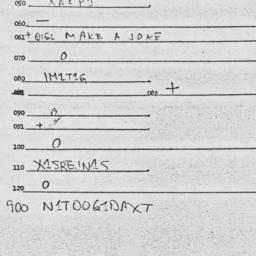 050
060 —
061+ Q1G1 MAKE A JOKE
070 0
080 IM1T1G
081 082 +
090 0
091 +
100 0
110 X1SREIN1S
120 0
900 N1TDOG1DAXT